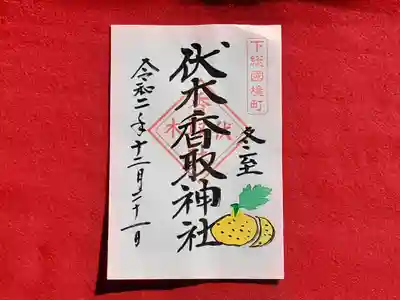 下総國境町
冬至
伏木香取神社
令和二年十二月二十一日